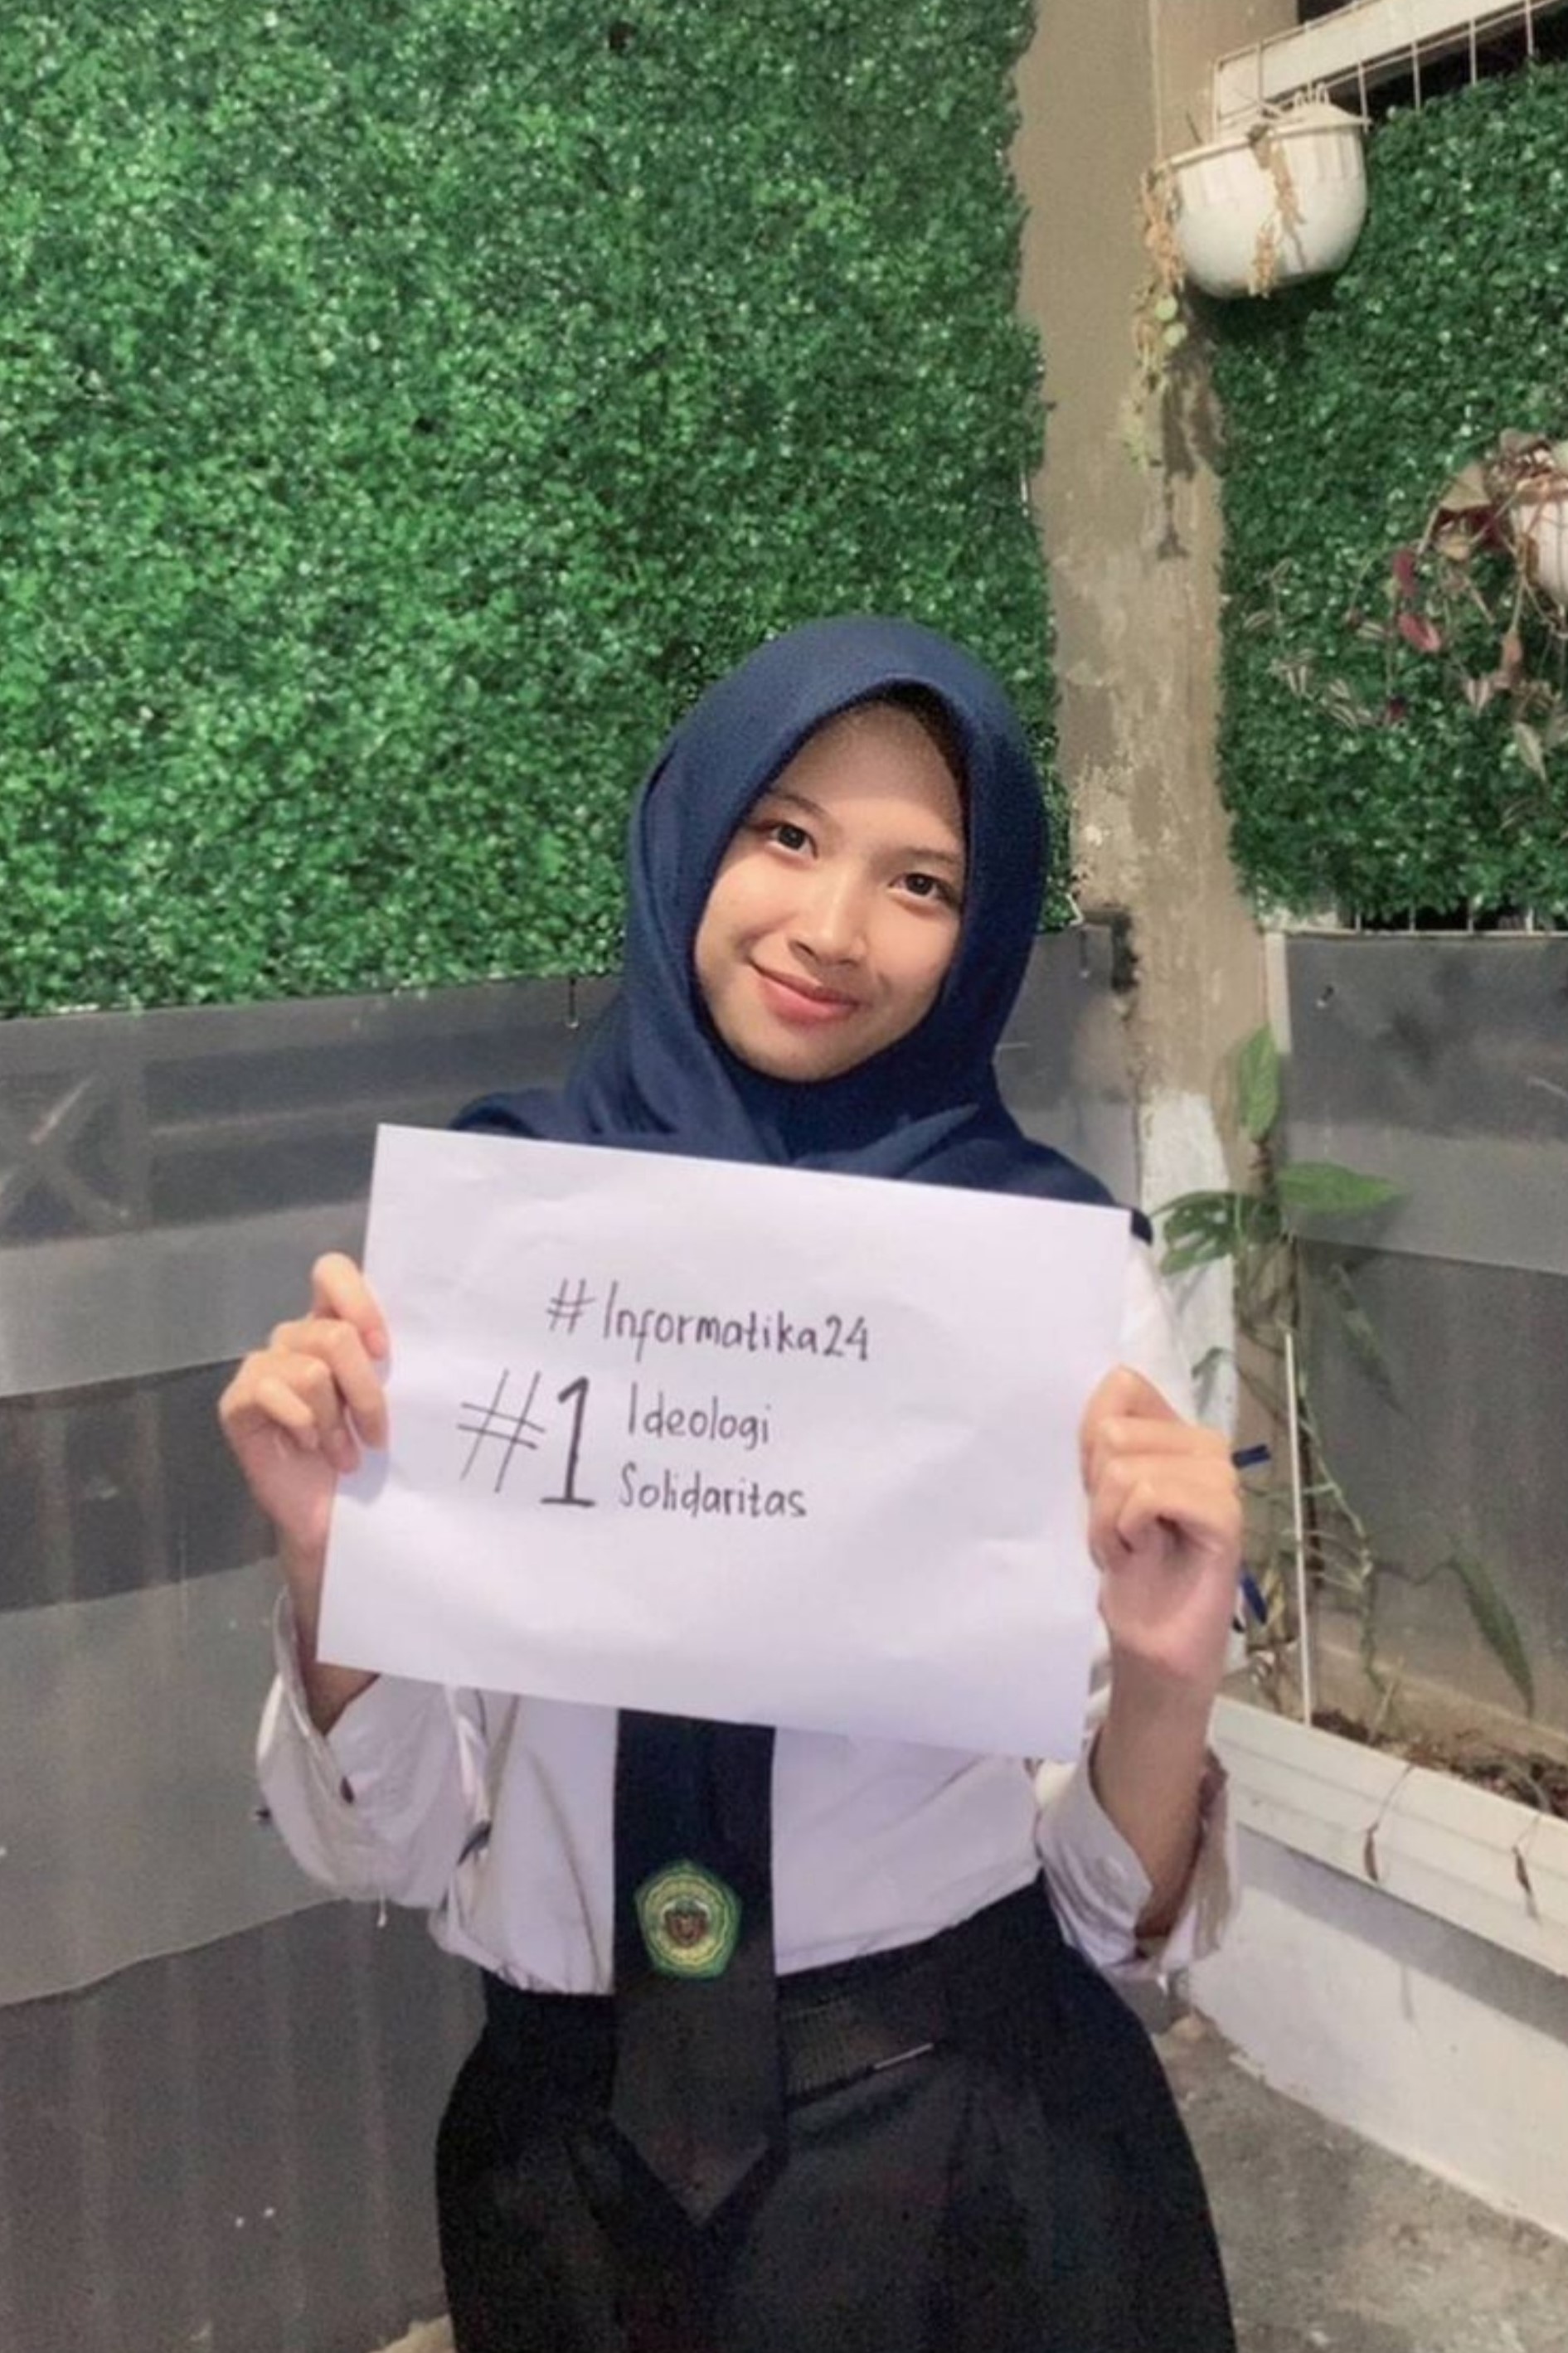 #Informatika24
#1 Ideologi
Solidaritas